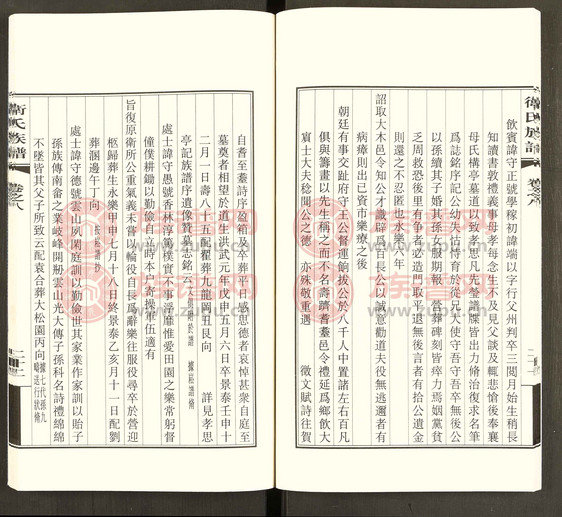 衛氏族譜
卷之八
飲賓諱守正號學稼初諱端以字行父州判卒三閱月始生稍長
知讀書敦禮義事母孝每念生不及見父談及輒悲愴後奉襄
母氏構亭墓道以致孝思凡先塋譜牒皆出力脩治復求名筆
為誌銘序記公幼失怙恃育於從兄天使守吾守吾卒無後公
以孫續其子婚其孫女服期報營葬碑刻皆瘁力焉姻黨貧
乏周救恐後里有爭者必造門取平退無後言者有拾公遺金
則還之不忍匿也永樂六年
詔取大木邑令知公才識辟為百長公以誠意勸道夫役無逃遲者有
病瘴則出已資市藥療之後
朝廷有事交趾府守王公督運餉拔公於八千人中置諸左右百凡
俱與籌畫以先生稱之而不名壽躋耋邑令禮延爲鄉飲大
賓士大夫稔聞公之德亦殊敬重遇 徵文賦詩往賀
自耆至耋詩序盈箱及卒葬日感思德者哀悼甚衆自庭至
墓奠者相望於道生洪武元年戊申五月六日卒景泰壬申十
二月一日壽八十五配瞿葬九龍岡丑艮向 詳見孝思
亭記族譜序遺像贊墓志銘云
處士諱守愚號香林淳篤樸實不事浮靡惟愛田園之樂常躬督
僮僕耕鋤以勤儉自立時本戶寄操軍伍適有
旨復原衛所公重氣義未嘗以輪役自長爲辭樂往服役尋卒於營迎
柩歸葬生永樂甲申七月十八日終景泰乙亥十一日配劉
葬涸邊午丁向
處士諱守德號雲山夙閑庭訓以勤儉世其家業作家訓以貽子
孫族傳南畲之業岐峰開剏雲山光大傳子孫科名詩禮綿綿
不墜皆其父子所致云配袁合葬大松園丙向
衛氏族譜
卷之八